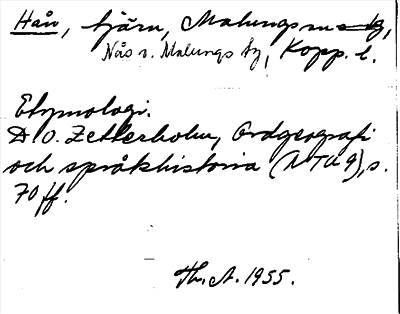 Hån, tjärn, Malungs sn
Nås o. Malungs fg, Kopp. l.
Etymologi.
D. O. Zetterholm, Ordgeografi
och språkhistoria (NTU 9), s.
70 ff.
Th. A. 1955.